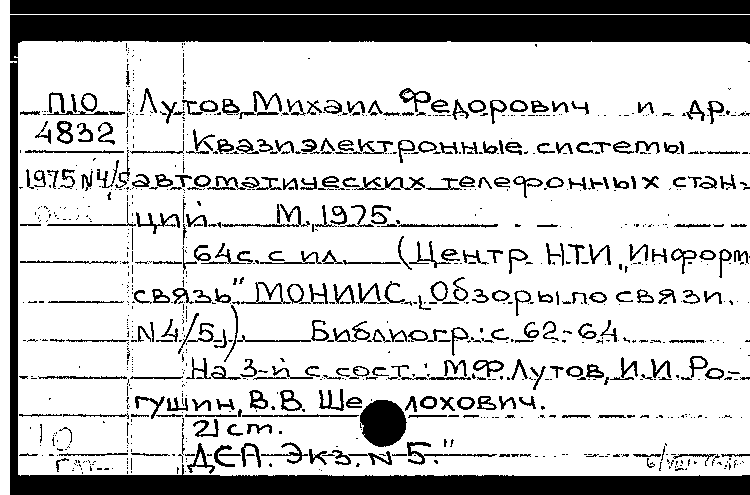 П10 Лутов, Михаил Федорович и др.
4832 Квазиэлектронные системы
1975 N4/5 автоматических телефонных стан-
ций. М., 1975.
64 с. с ил. (Центр НТИ „Информ
связь" МОНИИС. [Обзоры по связи.
N 4/5]). Библиогр.: с. 62-64.
На 3-й с. сост.: М.Ф. Лутов, И.И. Ро-
гушин, В.В. Ше лохович.
21 см.
10
ДСП. Экз. N 5."